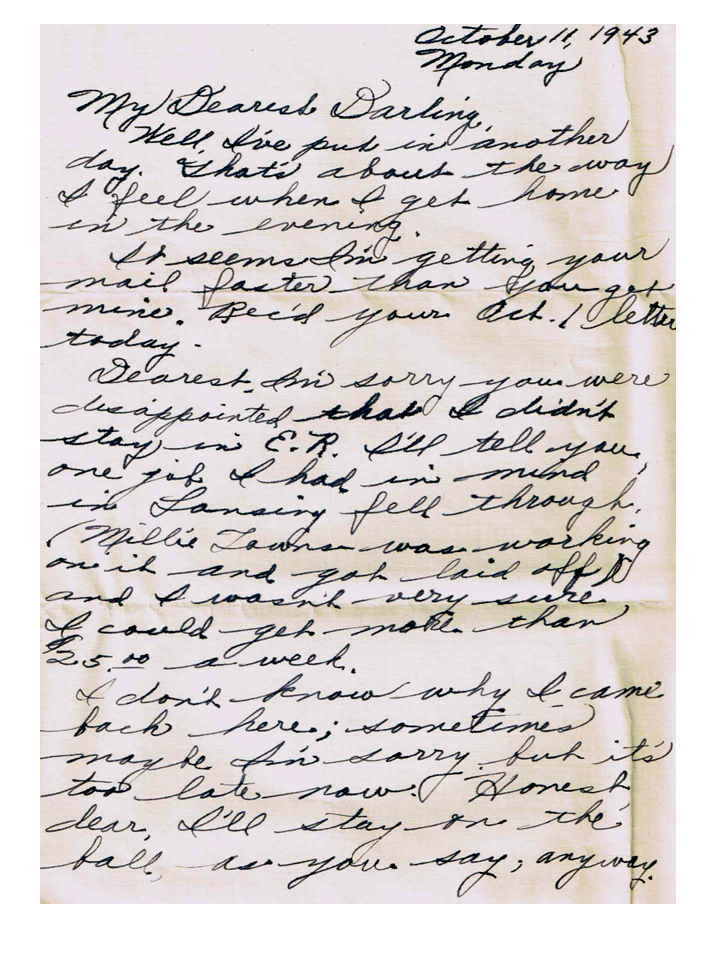 October 11, 1943
Monday
My Dearest Darling,
Well, I've put in another
day. That's about the way
I feel when I get home
in the evening.
It seems I'm getting your
mail faster than you get
mine. Rec'd your Oct. 1 letter
today.
Dearest, I'm sorry you were
disappointed that I didn't
stay in E.R. I'll tell you,
one job I had in mind
in Lansing fell through,
(Millie Towns was working
on it and got laid off)
and I wasn't very sure
I could get more than
$25.00 a week.
I don't know why I came
back here; sometimes
maybe I'm sorry, but it's
too late now. Honest,
dear, I'll stay on the
ball, as you say; anyway